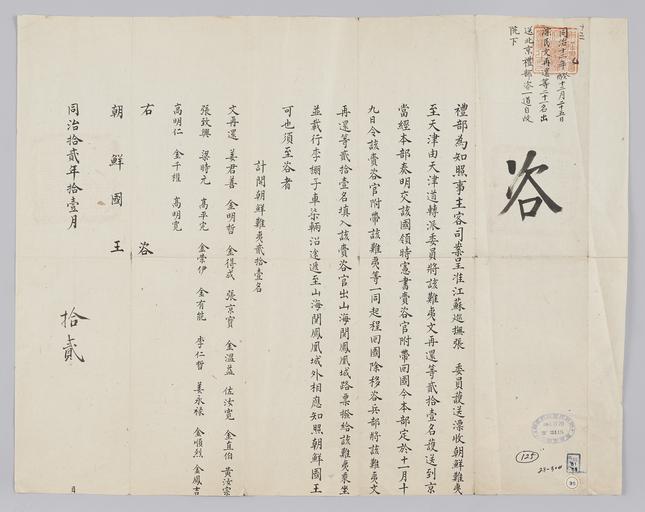 十三
同治十二年癸酉十二月二十五日
漂民文再還等二十一名出
送北京禮部咨一道自政
院下
咨
禮部為知照事主客司案呈准江蘇巡撫張 委員護送漂收朝鮮難夷
至天津由天津道轉派委員將該難夷文再還等貳拾壹名護送到京
當經本部奏明交該國領時憲書賫咨官附帶回國今本部定於十一月十
九日令該賫咨官附帶該難夷等一同起程回國除移咨兵部將該難夷文
再還等貳拾壹名填入該賫咨官出山海關鳳凰城路票撥給該難夷乘坐
並載行李棚子車柒輛沿途遞至山海關鳳凰城外相應知照朝鮮國王
可也須至咨者
計開朝鮮難夷貳拾壹名
文再還 姜君善 金明哲 金得成 張京寶 金溫益 佐汝寬 金直伯 黃汝宗
張致興 梁時元 高平完 金榮伊 金有能 李仁哲 姜永祿 金順烈 金鳳吉
高明仁 金千權 高明寬
右 咨
朝鮮國王
同治拾貳年拾壹月
拾貳
日
125
23-404